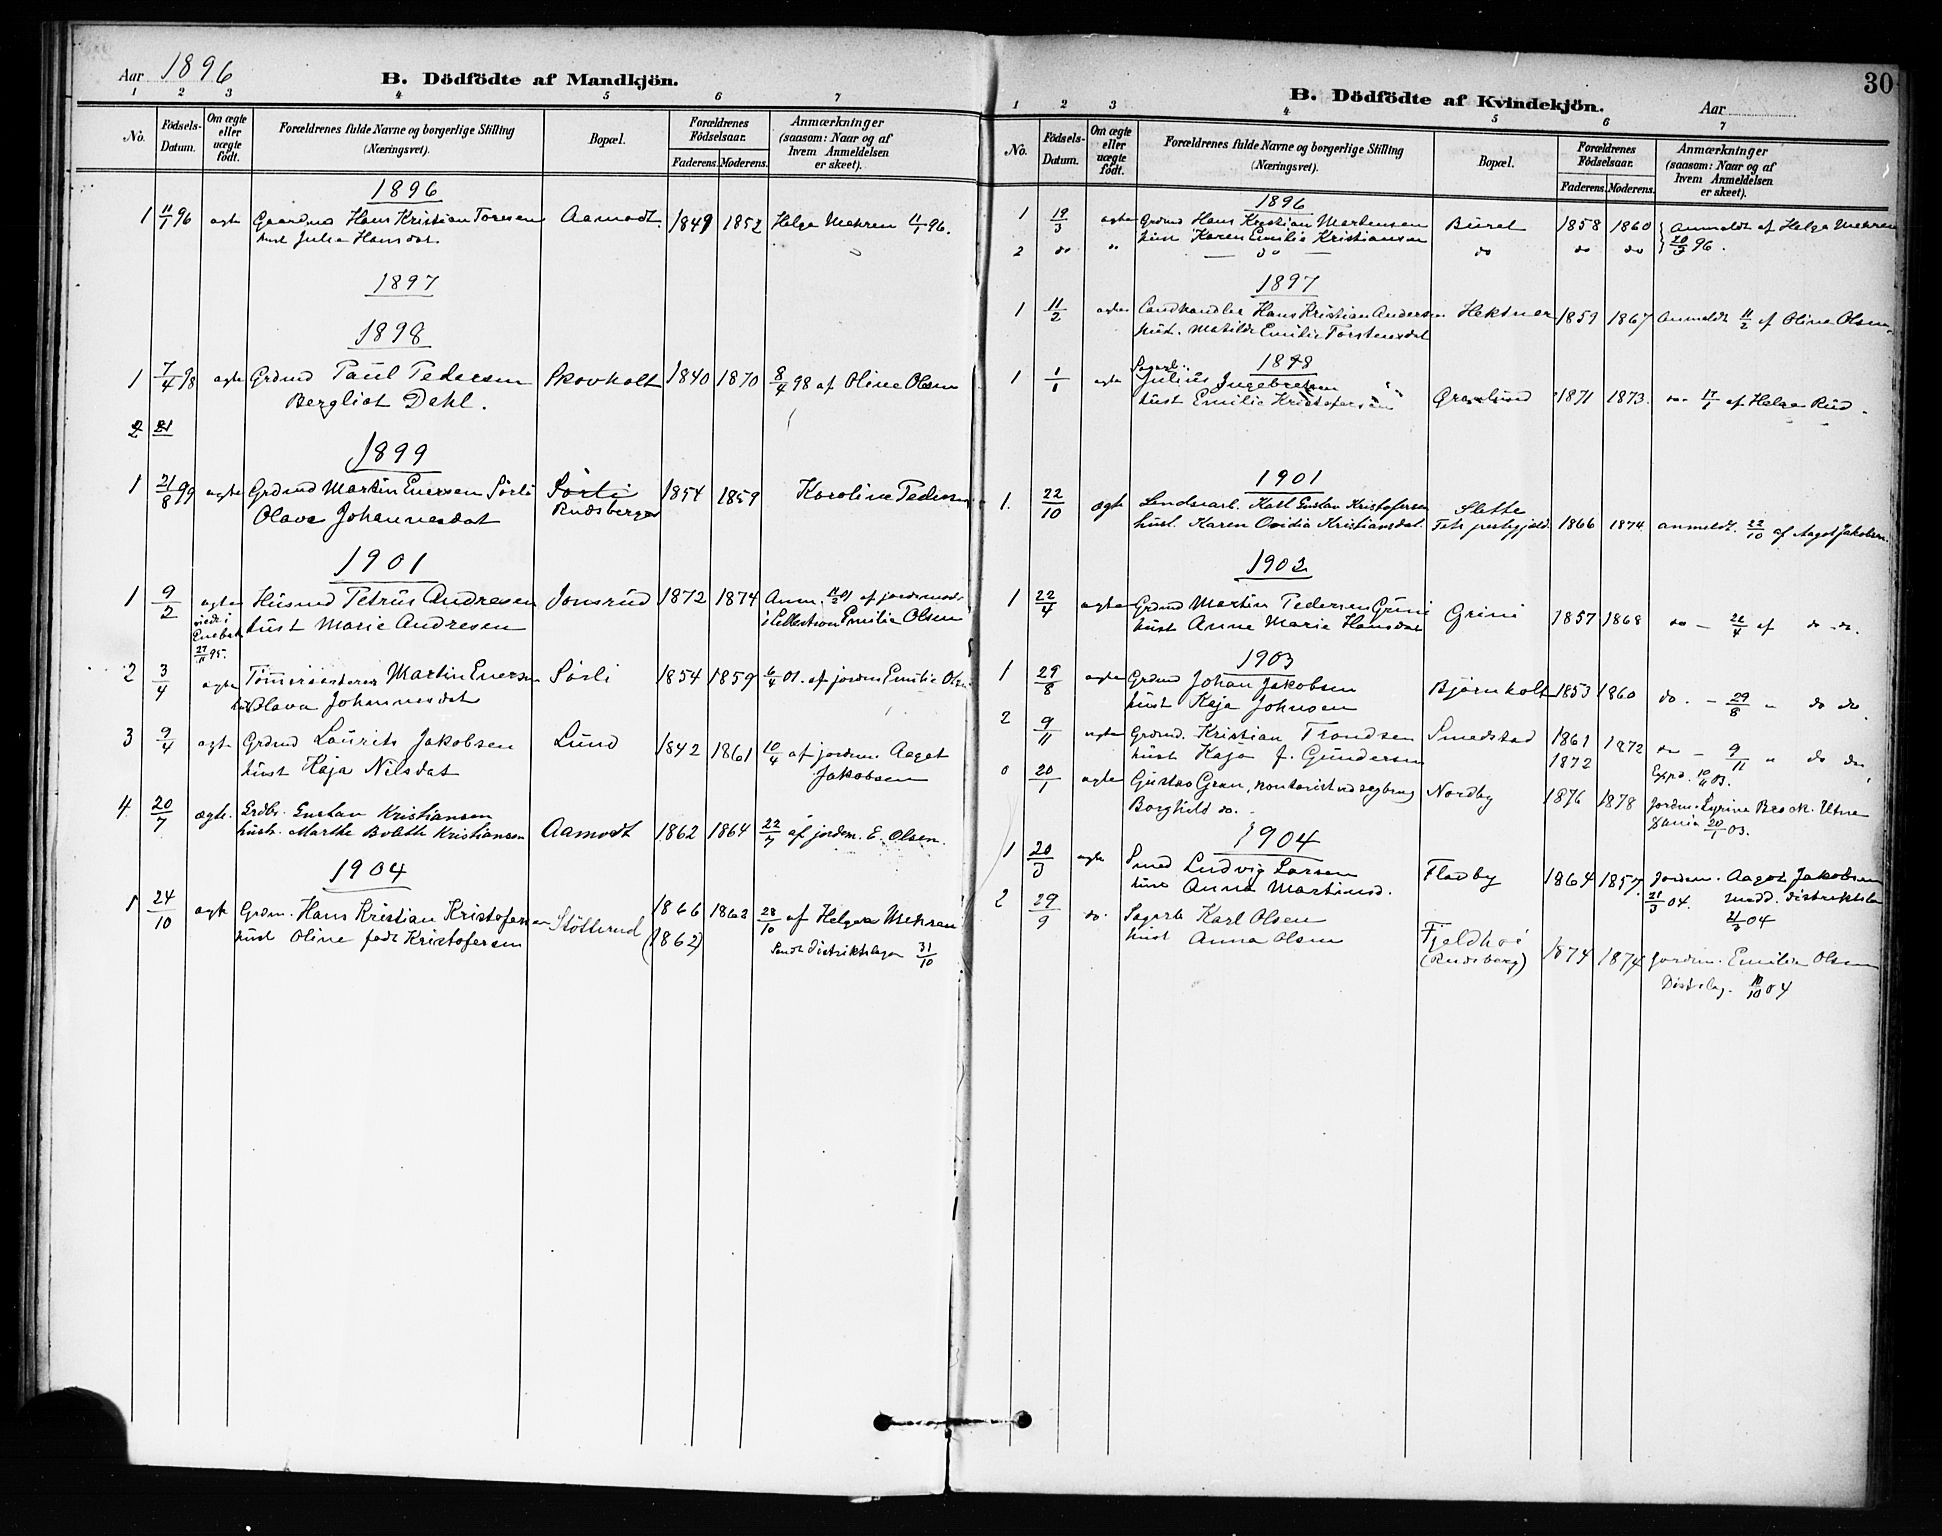 Aar 1896
B. Dödfödte af Mandkjön.
1 2 3 4 5 6 7
No. Födsels-Datum. Om ægte eller uægte födt. Forældrenes fulde Navne og borgerlige Stilling (Næringsvei). Bopæl. Forældrenes Födselsaar. Faderens. Moderens. Anmærkninger (saasom: Naar og af hvem Anmeldelsen er skeet).
1896
1 11/7 96 ægte Gaardmd Hans Kristian Toresen Aamodt 1849 1852 Helga Mehren 11/7 96.
hust Julia Hansdat
1897
1898
1 7/4 98 ægte Grdmd Paul Pedersen Skovholt 1840 1870 8/4 98 af Oline Olsen
Bergliot Dehl.
2 21
1899
1 21/8 99 ægte Grdmd Martin Evensen Sörli Sörli 1854 1859 Karoline Pedersen
Olava Johannesdat Rudsberget
1901
1 9/2 ægte Husmd Petrus Andresen Jonsrud 1872 1874 Anm. 11/2 01 af jordemod.
viede i Enebak 27/11 95. hust Marie Andresen Emilie Olsen
2 3/4 ægte Martin Evensen Sörli 1854 1859 6/4 01. af jordm Emilie Olsen
Olava Johannesdat
3 9/4 ægte Grdmd Laurits Jakobsen Lund 1842 1861 10/4 af jordm. Aagot
hust Kaja Nilsdat Jakobsen
4 20/7 ægte. Grdbr. Gustav Kristiansen
hustr. Marthe Bolette Kristiansen Aamodt 1862 1864 22/7 af jordm. E. Olsen.
1904
1 24/10 ægte Grdm. Hans Kristian Kristofersen Stötterud 1866 1862 28/10 af Helga Mehren
hust Oline födt Kristofersen (1862) Sendt distriktslægen 31/10
30
B. Dödfödte af Kvindekjön.
Aar
1 2 3 4 5 6 7
No. Födsels-Datum. Om ægte eller uægte födt. Forældrenes fulde Navne og borgerlige Stilling (Næringsvei). Bopæl. Forældrenes Födselsaar. Faderens. Moderens. Anmærkninger (saasom: Naar og af hvem Anmeldelsen er skeet).
1896
1 19/3 ægte Grdmd Hans Kristian Martensen Burel 1858 1860 Anmeldt af Helga Mehren
hust Karen Emilie Kristiansen 20/3 96.
2 do " — do — do do do
1897
1 11/2 ægte Landhandler Hans Kristian Andersen Hektner 1859 1867 Anmeldt 11/2 af Oline Olsen
hust. Matilde Emilie Torstensdat
1898
1 1/1 ægte Sagarb. Julius Ingebretsen
hust Emilie Kristofersen Grønlund 1871 1873. do 17/1 af Helga Rud.
1901
1. 22/10 ægte Landarb. Karl Gustav Kristofersen Slette
hust. Karen Ovidia Kristiansdat. Fets prestegjeld. 1866 1874 anmeldt. 22/10 af Aagot Jakobsen.
1902
1 22/4 ægte Grdmd Martin Pedersen Grini Grini 1857 1868 do — 22/4 af do do.
hust Anne Marie Hansdat
1903
1 29/8 ægte Grdmd Johan Jakobsen Bjørnholt 1853 1860 do. — 29/8 " do do
hust Kaja Johnsen
2 9/11 ægte Grdmd. Kristian Trondsen Smedstad 1861 1872 do — 9/11 " do do
hust Kaja f. Gundersen 1872 Expd. 10/11 03.
0 20/1 ægte Gustav Gran, Nordby 1876 1878 Jordm. Utne
Borghild do. 20/1 03.
1904
1 20/3 ægte Smed Ludvig Larsen Fladby 1864 1857. Jordm. Aagot Jakobsen
hust Anna Martinsd. 21/3 04. medd. distriktslæ
21/3 04
2 29/9 do. Sagarb Karl Olsen
hust Anna Olsen Fjeldhoi
(Rudsberg) 1874 1874 Jordm. Emilie Olsen
Distrlæg. 11/10 04